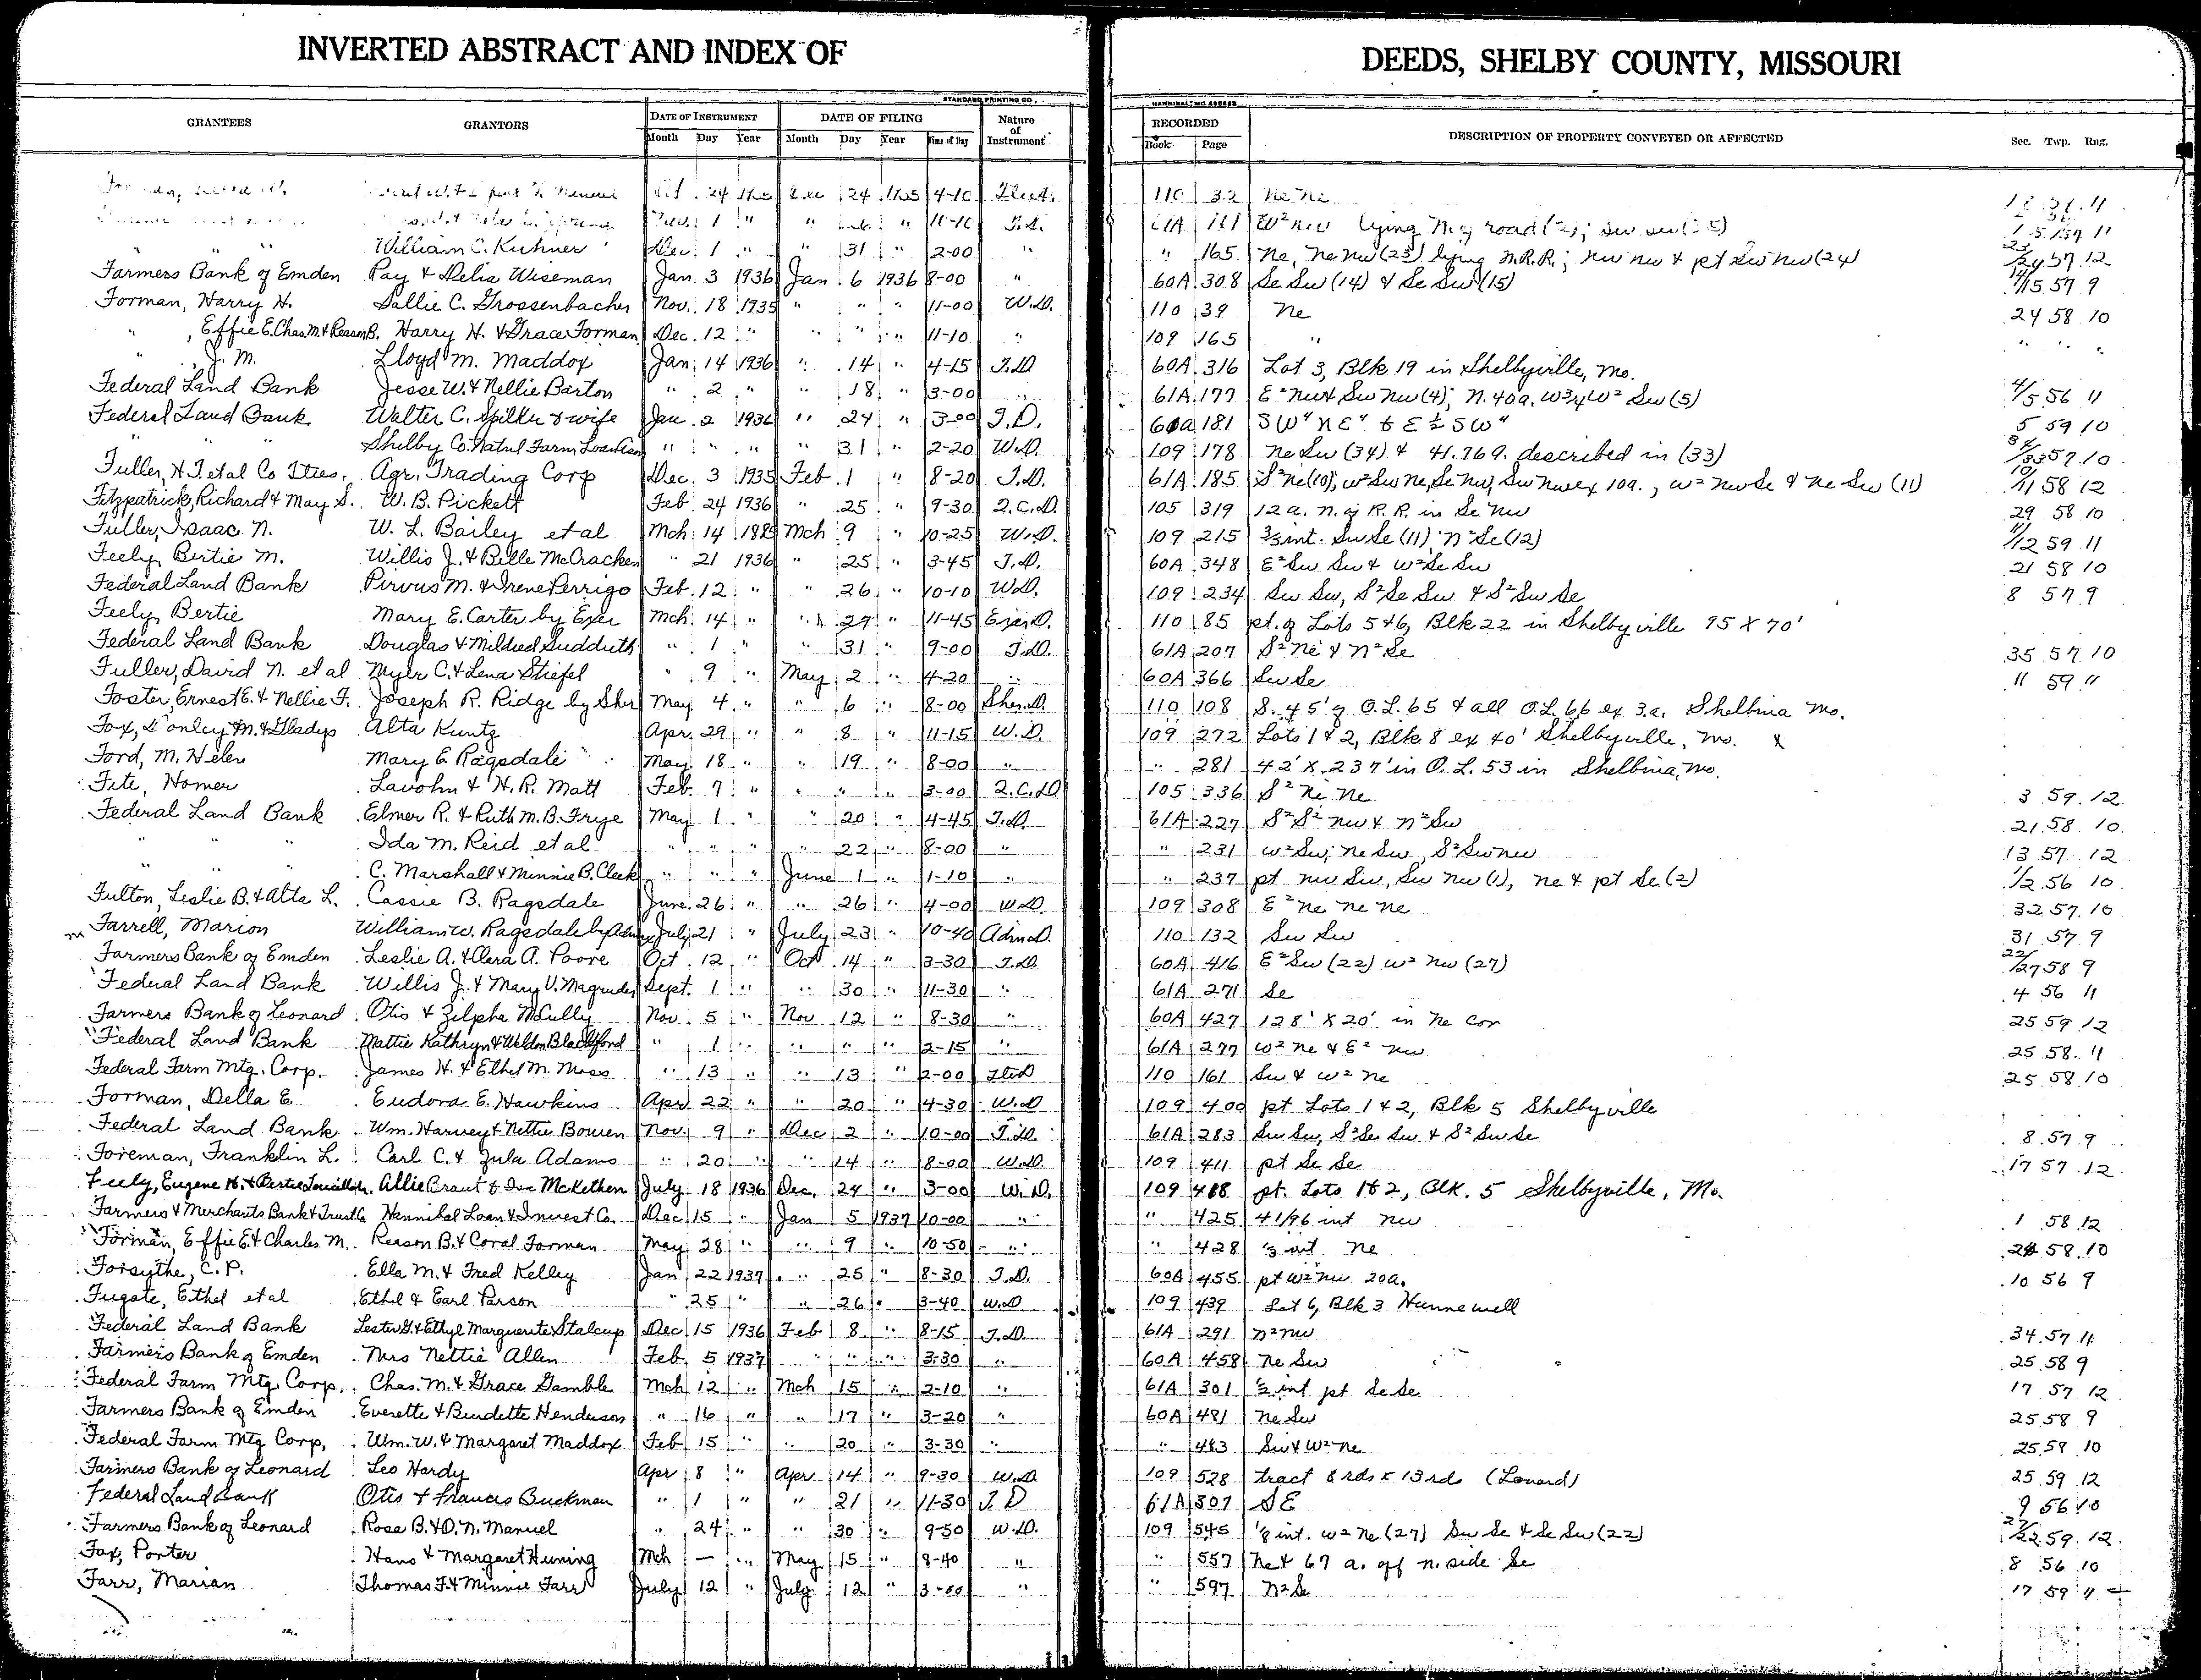 INVERTED ABSTRACT AND INDEX OF DEEDS, SHELBY COUNTY, MISSOURI
STANDARD PRINTING CO., HANNIBAL, MO
GRANTEES GRANTORS DATE OF INSTRUMENT DATE OF FILING Nature of Instrument RECORDED DESCRIPTION OF PROPERTY CONVEYED OR AFFECTED Sec. Twp. Rng.
Month Day Year Month Day Year Time of Day Book Page
24 24 4-10 110 32 Ne Ne
Nov. 1 " " " T.D. 61A W² nw lying road
" " " William C. Kuhner Dec. 1 " " 31 " 2-00 " " 165 Ne, Ne Nw (23) lying N.R.R.; Nw Nw & pt Sw Nw (24) 23/24 57 12
Farmers Bank of Emden Ray & Delia Wiseman Jan. 3 1936 Jan. 6 1936 8-00 " 60A 308 Se Sw (14) & Se Sw (15) 14/15 57 9
Forman, Harry H. Sallie C. Grossenbacher Nov. 18 1935 " " " 11-00 W.D. 110 39 Ne 24 58 10
" , Effie E. Chas. M. & Reason B. Harry H. & Grace Forman Dec. 12 " " " " 11-10 " 109 165 " " " "
" , J. M. Lloyd M. Maddox Jan. 14 1936 " 14 " 4-15 T.D. 60A 316 Lot 3, Blk 19 in Shelbyville, Mo.
Federal Land Bank Jesse W. & Nellie Barton " 2 " " 18 " 3-00 " 61A 177 E² Nw & Sw Nw (4); N. 40a. W 3/4 W² Sw (5) 4/5 56 11
Federal Land Bank Walter C. Spilker & wife Jan 2 1936 " 24 " 3-00 T.D. 60a 181 SW" NE" & E ½ SW" 5 59 10
" " Shelby Co. Natnl Farm Loan Assn " " " " 31 " 2-20 W.D. 109 178 Ne Sw (34) & 41.76a. described in (33) 34/33 57 10
Fuller, H.T. et al Co Ttees. Agr. Trading Corp Dec. 3 1935 Feb. 1 " 8-20 T.D. 61A 185 S² Ne (10); W² Sw Ne, Se Nw, Sw Nw ex 10a., W² Nw Se & Ne Sw (11) 10/11 58 12
Fitzpatrick, Richard & May S. W. B. Pickett Feb 24 1936 " 25 " 9-30 Q.C.D. 105 319 12 a. N. of R.R. in Se Nw 29 58 10
Fuller, Isaac N. W. L. Bailey et al Mch 14 Mch 9 " 10-25 W.D. 109 215 int. Sw Se (11) N² Se (12) 11/12 59 11
Feely, Bertie M. Willis J. & Belle McCracken " 21 1936 " 25 " 3-45 T.D. 60A 348 E² Sw Sw & W² Se Sw 21 58 10
Federal Land Bank Pirvus M. & Irene Perrigo Feb. 12 " " 26 " 10-10 W.D. 109 234 Sw Sw, S² Se Sw & S² Sw Se 8 57 9
Feely, Bertie Mary E. Carter by Exer Mch. 14 " " 27 " 11-45 Exer D. 110 85 pt. of Lots 5 & 6, Blk 22 in Shelbyville 95 X 70'
Federal Land Bank Douglas & Mildred Sudduth " 1 " " 31 " 9-00 T.D. 61A 207 S² Ne & N² Se 35 57 10
Fuller, David N. et al Myle C. & Lena Stiefel " 9 " May 2 " 4-20 " 60A 366 Sw Se 11 59 11
Foster, Ernest E. & Nellie F. Joseph R. Ridge by Sher May 4 " " 6 " 8-00 Sher. D. 110 108 S. 45' of O.L. 65 & all O.L. 66 ex 3.a. Shelbina Mo.
Fox, Donley M. & Gladys Alta Kuntz Apr. 29 " " 8 " 11-15 W.D. 109 272 Lots 1 & 2, Blk 8 ex 40' Shelbyville, Mo.
Ford, M. Helen Mary E. Ragsdale May 18 " " 19 " 8-00 " " 281 42' X 237' in O.L. 53 in Shelbina, Mo.
Fite, Homer Lavohn & H. R. Matt Feb. 7 " " " " 3-00 Q.C.D. 105 336 S² Ne Ne 3 59 12
Federal Land Bank Elmer R. & Ruth M.B. Frye May 1 " " 20 " 4-45 T.D. 61A 227 S² S² Nw & N² Sw 21 58 10
" " " Ida M. Reid et al " " " " 22 " 8-00 " " 231 W² Sw; Ne Sw, S² Sw Nw 13 57 12
" " " C. Marshall & Minnie B. Cleek " " " June 1 " 1-10 " " 237 pt Nw Sw, Sw Nw (1), Ne & pt Se (2) 1/2 56 10
Fulton, Leslie B. & Alta L. Cassie B. Ragsdale June 26 " " 26 " 4-00 W.D. 109 308 E² Ne Ne Ne 32 57 10
Farrell, Marion William W. Ragsdale by Admr July 21 " July 23 " 10-40 Adm D. 110 132 Sw Sw 31 57 9
Farmers Bank of Emden Leslie A. & Clara A. Poore Oct. 12 " Oct 14 " 3-30 T.D. 60A 416 E² Sw (22) W² Nw (27) 22/27 58 9
Federal Land Bank Willis J. & Mary V. Magruder Sept. 1 " " 30 " 11-30 " 61A 271 Se 4 56 11
Farmers Bank of Leonard Otis & Zilpha McCully Nov. 5 " Nov 12 " 8-30 " 60A 427 128' X 20' in Ne Cor 25 59 12
Federal Land Bank Mattie Kathryn & Weldon Blackford " 1 " " " " 2-15 " 61A 277 W² Ne & E² Nw 25 58 11
Federal Farm Mtg. Corp. James H. & Ethel M. Moss " 13 " " 13 " 2-00 110 161 Sw & W² Ne 25 58 10
Forman, Della E. Eudora E. Hawkins Apr. 22 " " 20 " 4-30 W.D 109 400 pt Lots 1 & 2, Blk 5 Shelbyville
Federal Land Bank Wm. Harvey & Nettie Bowen Nov. 9 " Dec 2 " 10-00 T.D. 61A 283 Sw Sw, S² Se Sw & S² Sw Se 8 57 9
Foreman, Franklin L. Carl C. & Zula Adams " 20 " " 14 " 8-00 W.D. 109 411 pt Se Se 17 57 12
Feely, Eugene H. & Bertie Allie Brant & McKethen July 18 1936 Dec. 24 " 3-00 W.D. 109 418 pt. Lots 1 & 2, Blk. 5 Shelbyville, Mo.
Farmers & Merchants Bank & Trust Co Hannibal Loan & Invest Co. Dec 15 " Jan 5 1937 10-00 " " 425 41/96 int Nw 1 58 12
Forman, Effie E. & Charles M. Reason B. & Coral Forman May 28 " " 9 " 10-50 " " 428 ⅓ int Ne 24 58 10
Forsythe, C. P. Ella M. & Fred Kelley Jan 22 1937 " 25 " 8-30 T.D. 60A 455 pt W² Nw 20a. 10 56 9
Fugate, Ethel et al Ethel & Earl Parson " 25 " " 26 " 3-40 W.D 109 439 Lot 6, Blk 3 Hunnewell
Federal Land Bank Lester G. & Ethyl Marguerite Stalcup Dec 15 1936 Feb 8 " 8-15 T.D. 61A 291 N² Nw 34 57 11
Farmers Bank of Emden Mrs Nettie Allen Feb. 5 1937 " " " 3-30 " 60A 458 Ne Sw 25 58 9
Federal Farm Mtg. Corp. Chas. M. & Grace Gamble Mch 12 " Mch 15 " 2-10 " 61A 301 ½ int pt Se Se 17 57 12
Farmers Bank of Emden Everette & Burdette Henderson " 16 " " 17 " 3-20 " 60A 481 Ne Sw 25 58 9
Federal Farm Mtg Corp. Wm. W. & Margaret Maddox Feb 15 " " 20 " 3-30 " " 483 Sw & W² Ne 25 58 10
Farmers Bank of Leonard Leo Hardy Apr 8 " Apr 14 " 9-30 W.D. 109 528 tract 8 rds x 13 rds (Leonard) 25 59 12
Federal Land Bank Otis & Francis Buckman " 1 " " 21 " 11-30 T.D 61A 307 SE 9 56 10
Farmers Bank of Leonard Rosa B. & D. N. Manuel " 24 " " 30 " 9-50 W.D. 109 545 ⅛ int. W² Ne (27) Sw Se & Se Sw (22) 27/22 59 12
Fox, Porter Hans & Margaret Huning Mch — " May 15 " 8-40 " " 557 Ne & 67 a. off N. side Se 8 56 10
Farr, Marian Thomas F. & Minnie Farr July 12 " July 12 " 3-00 " " 597 N² Se 17 59 11